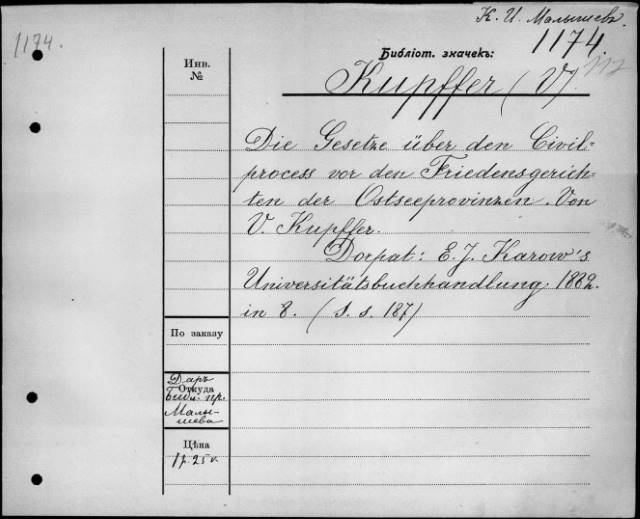 К. И. Малышевъ.
1174.
1174.
Библіот. значекъ:
Инв.
№
Kupffer (V).
Die Gesetze über den Civil=
process vor den Friedensgerich=
ten der Ostseeprovinzen. Von
V. Kupffer.
Dorpat: E. J. Karow's
Universitätsbuchhandlung 1882.
in 8. (S. s. 187)
По заказу
Даръ
Откуда
Библ. пр.
Малы-
шева
Цѣна
1р. 25 к